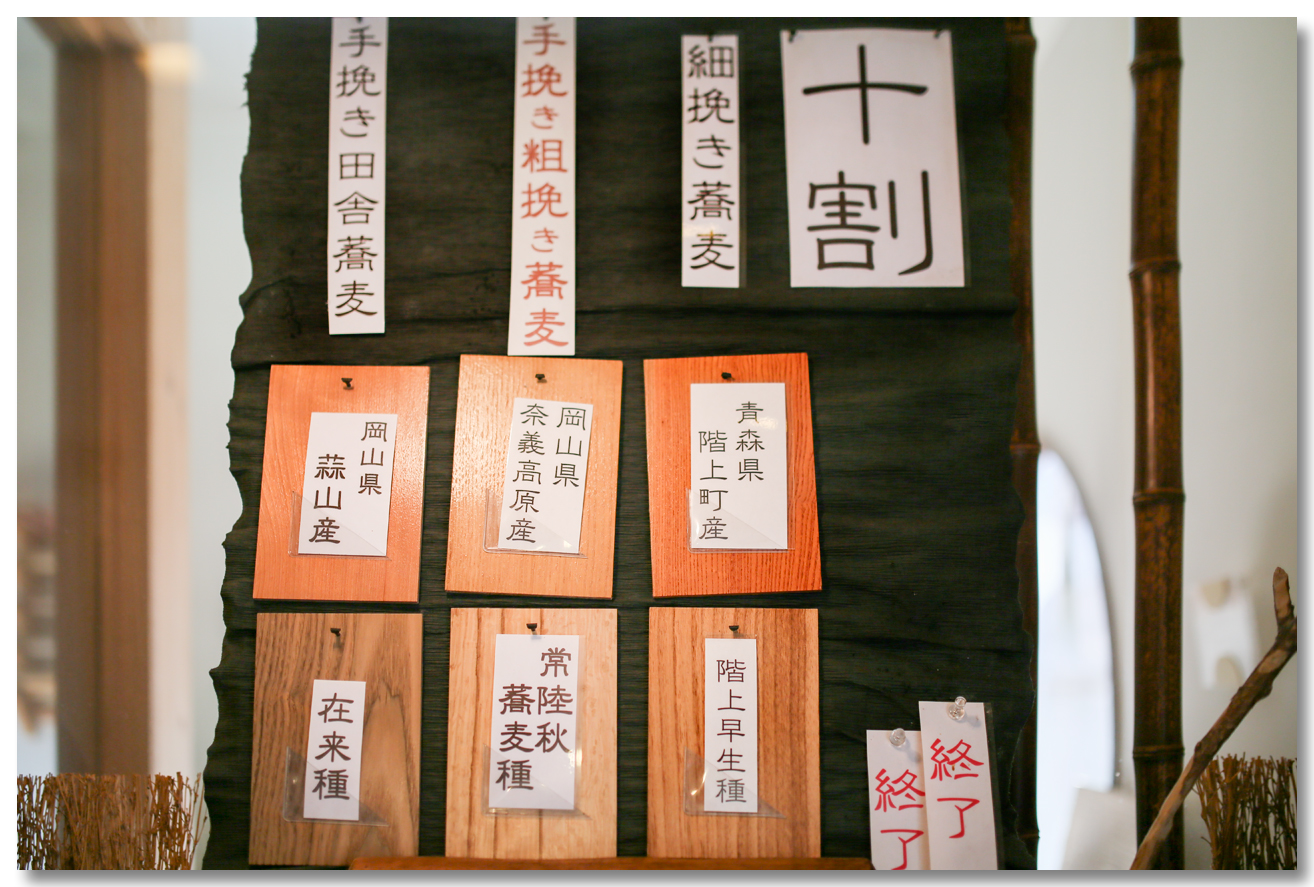 十割
細挽き蕎麦
手挽き粗挽き蕎麦
手挽き田舎蕎麦
青森県
階上町産
岡山県
奈義高原産
岡山県
蒜山産
階上早生種
常陸秋
蕎麦種
在来種
終了
終了